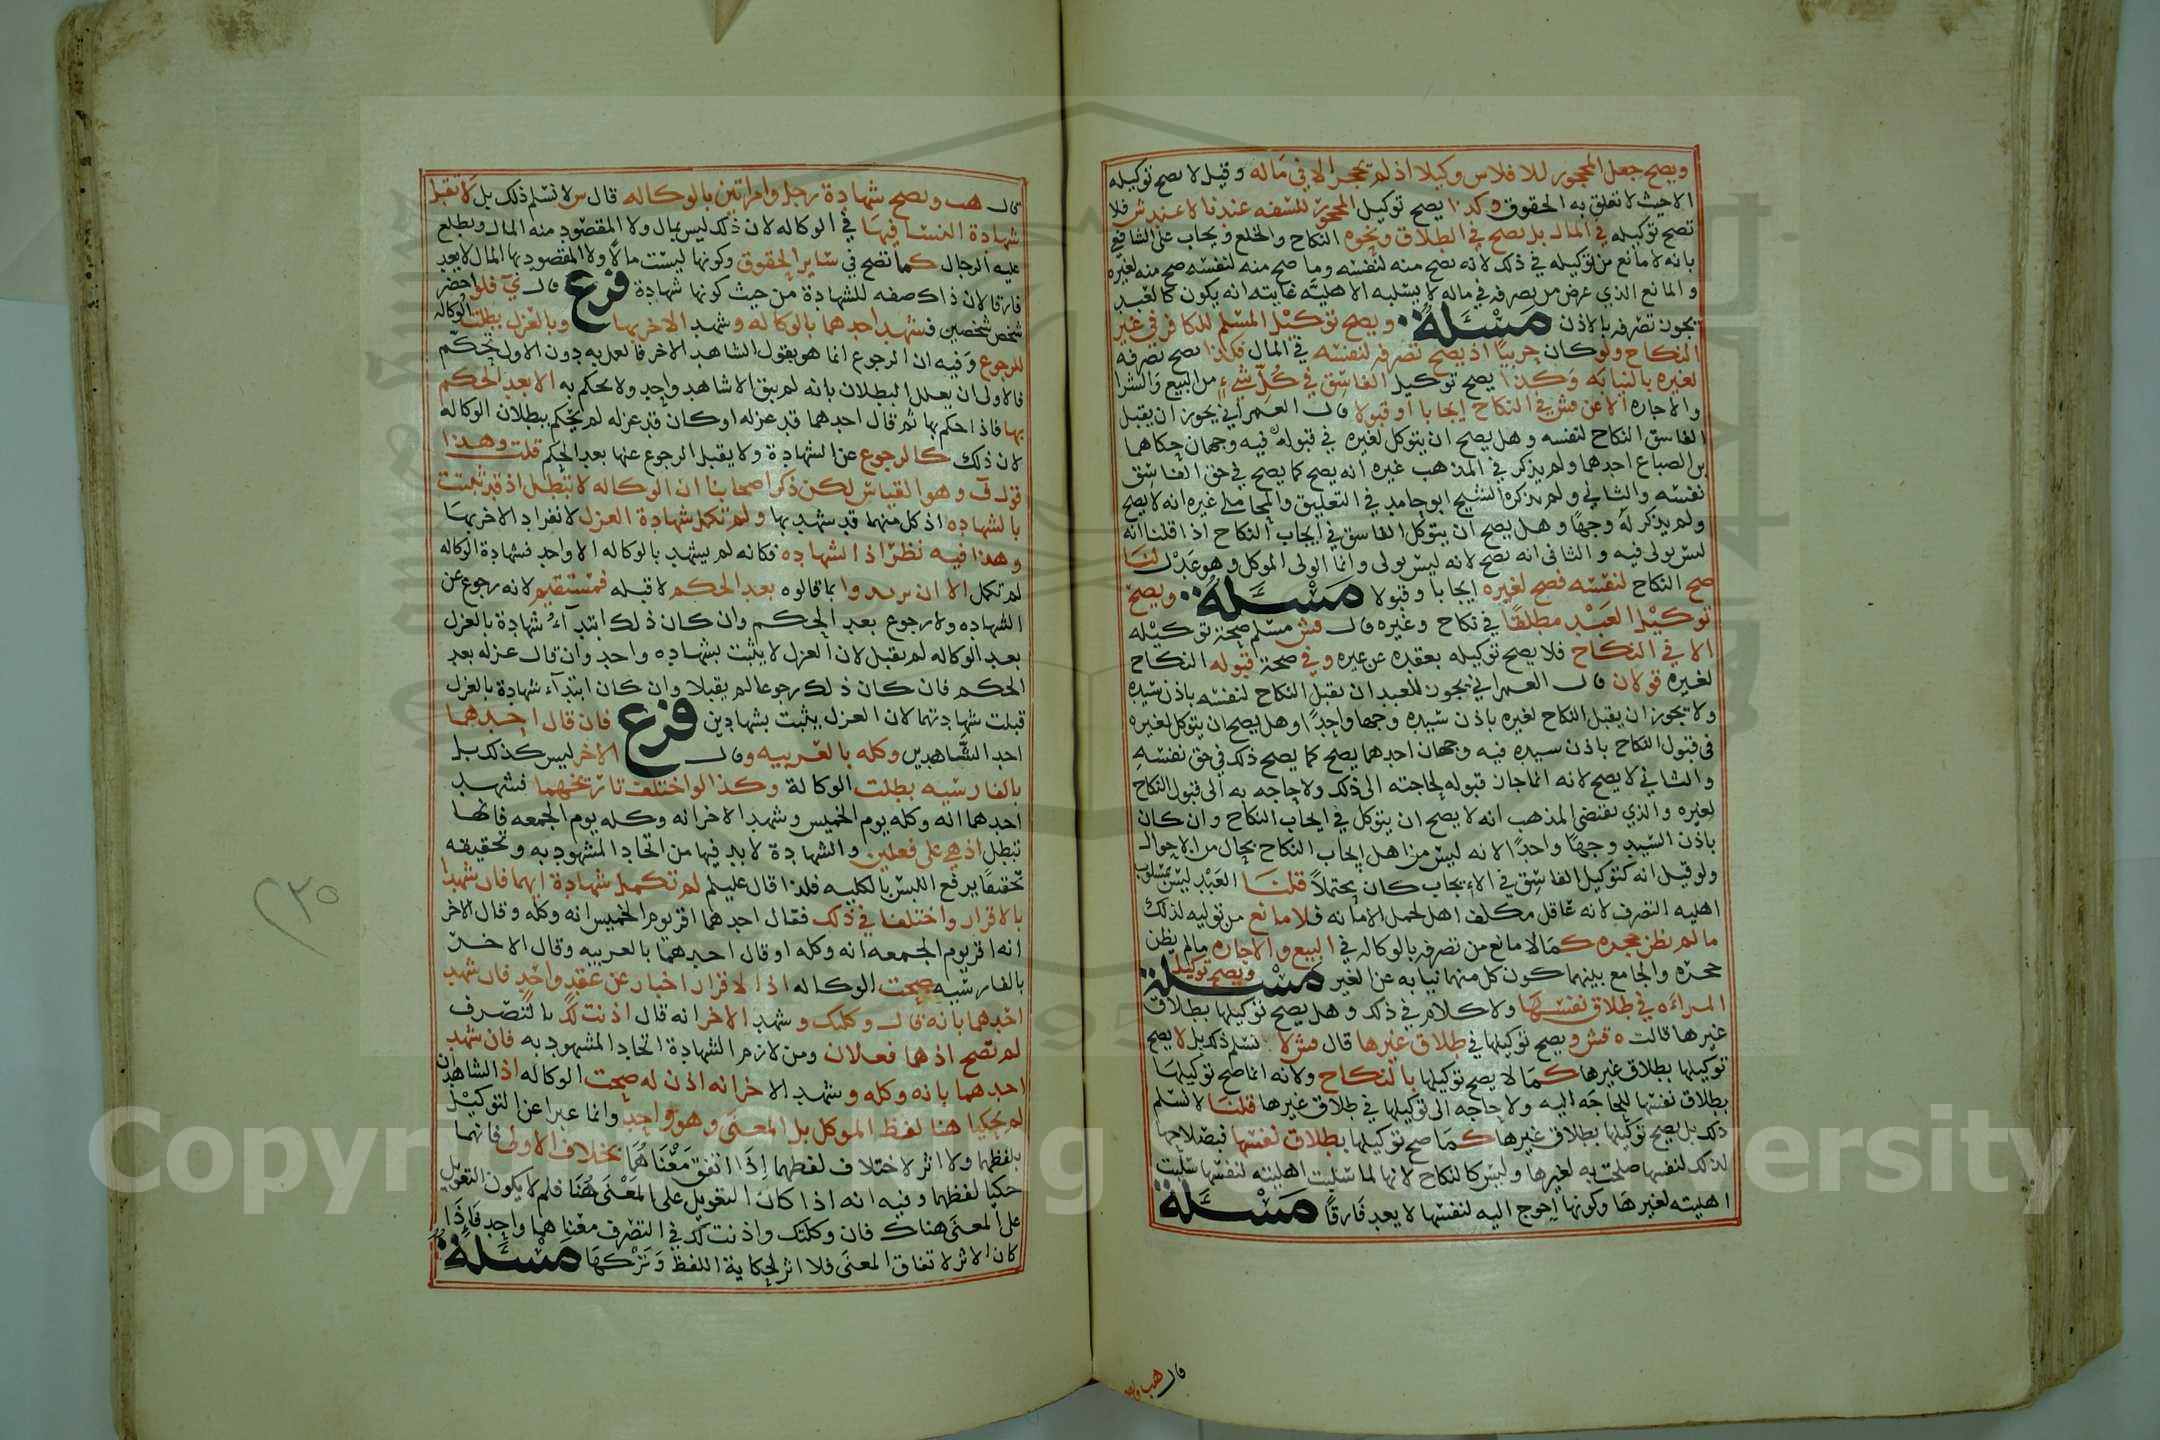 ويصح جعل المحجور للافلاس وكيلا اذ لم يحجر الا في ماله وقيل لا يصح توكيله
الا حيث لا تعلق به الحقوق وكذا يصح توكيل المحجور للسفه عندنا لا عند ش فلا
تصح توكيله في المال بل يصح في الطلاق ونحوه النكاح والخلع ويجاب على الشافعي
بانه لا مانع من توكيله في ذلك لانه يصح منه لنفسه وما صح منه لنفسه صح منه لغيره
والمانع الذي عرض من تصرفه في ماله لا يسلبه الاهلية غايته انه يكون كالعبد
يجوز تصرفه بالاذن مسئلة ويصح توكيل المسلم للكافر في غير
النكاح ولو كان حربيا اذ يصح تصرفه لنفسه في المال فكذا يصح تصرفه
لغيره بالنيابه وكذا يصح توكيل الفاسق في كل شيء من البيع والشرا
والاجاره الا عن ش في النكاح ايجابا او قبولا قال العمراني يجوز ان يقبل
الفاسق النكاح لنفسه وهل يصح ان يتوكل لغيره في قبوله فيه وجهان حكاهما
بن الصباغ احدهما ولم يذكر في المذهب غيره انه يصح كما يصح في حق الفاسق
نفسه والثاني ولم يذكره الشيخ ابو حامد في التعليق والمحاملي غيره انه لا يصح
ولم يذكر له وجها وهل يصح ان يتوكل الفاسق في ايجاب النكاح اذا قلنا انه
ليس بولي فيه والثاني انه يصح لانه ليس بولي وانما الولي الموكل وهو عدل لنا
صح النكاح لنفسه فصح لغيره ايجابا وقبولا مسئلة ويصح
توكيل العبد مطلقا في نكاح وغيره قال مسلم صحة توكيله
الا في النكاح فلا يصح توكيله بعقده عن غيره وفي صحة قبوله النكاح
لغيره قولان قال العمراني يجوز للعبد ان يقبل النكاح لنفسه باذن سيده
ولا يجوز ان يقبل النكاح لغيره باذن سيده وجها واحدا وهل يصح ان يتوكل لغيره
في قبول النكاح باذن سيده فيه وجهان احدهما يصح كما يصح ذلك في حق نفسه
والثاني لا يصح لانه انما جاز قبوله لحاجته الى ذلك ولا حاجه به الى قبول النكاح
لغيره والذي يقتضي المذهب انه لا يصح ان يتوكل في ايجاب النكاح وان كان
باذن السيد وجها واحدا لانه ليس من اهل ايجاب النكاح بحال من الاحوال
ولو قيل انه كتوكيل الفاسق في الايجاب كان محتملا قلنا العبد ليس بمسلوب
اهليه التصرف لانه عاقل مكلف اهل لحمل الامانه فلا مانع من توليه لذلك
ما لم يظن عجزه كما لا مانع من تصرفه بالوكاله في البيع والاجاره ما لم يظن
عجزه والجامع بينهما كون كل منهما نيابه عن الغير مسئلة ويصح توكيل
المراه في طلاق نفسها ولا كلام في ذلك وهل يصح توكيلها بطلاق
غيرها قالت ه ويصح توكيلها في طلاق غيرها قال لا نسلم ذلك بل لا يصح
توكيلها بطلاق غيرها كما لا يصح توكيلها بالنكاح ولانه انما صح توكيلها
بطلاق نفسها للحاجه اليه ولا حاجه الى توكيلها في طلاق غيرها قلنا لا نسلم
ذلك بل يصح توكيلها بطلاق غيرها كما صح توكيلها بطلاق نفسها فبصلاحها
لذلك لنفسها صلحت به لغيرها وليس كالنكاح لانها لما سلبت اهليته لنفسها سلبت
اهليته لغيرها وكونها احوج اليه لنفسها لا يعد فارقا مسئلة
قال هب
قال هب ويصح شهادة رجل وامراتين بالوكاله قال س لا نسلم ذلك بل لا تقبل
شهادة النسا فيها في الوكاله لان ذلك ليس بمال ولا المقصود منه المال ويطلع
عليه الرجال كما تصح في ساير الحقوق وكونها ليست مالا ولا المقصود بها المال لا يعد
فارقا لان ذاك صفه للشهادة من حيث كونها شهادة فرع قال ي فلو احضر
شخص شخصين فشهد احدهما بالوكاله وشهد الاخر بها وبالعزل بطلت الوكاله
للرجوع وفيه ان الرجوع انما هو بقول الشاهد الاخر فالعمل به دون الاول تحكم
فالاولى ان يعلل البطلان بانه لم يبق الا شاهد واحد ولا يحكم به الا بعد الحكم
بها فاذا حكم بها ثم قال احدهما قد عزله او كان قد عزله لم يحكم ببطلان الوكاله
لان ذلك كالرجوع عن الشهادة ولا يقبل الرجوع عنها بعد الحكم قلت وهذا
قول ف وهو القياس لكن ذكر اصحابنا ان الوكاله لا تبطل اذ قد ثبتت
بالشهاده اذ كل منهما قد شهد بها ولم تكمل شهادة العزل لانفراد الاخر بها
وهذا فيه نظر اذ الشهاده فكانه لم يشهد بالوكاله الا واحد فشهادة الوكاله
لم تكمل الا ان يريدوا بما قالوه بعد الحكم لا قبله فمستقيم لانه رجوع عن
الشهاده ولا رجوع بعد الحكم وان كان ذلك ابتداء شهادة بالعزل
بعد الوكاله لم يقبل لان العزل لا يثبت بشهاده واحد وان قال عزله بعد
الحكم فان كان ذلك رجوعا لم يقبلا وان كان ابتداء شهادة بالعزل
قبلت شهادتهما لان العزل يثبت بشهادين فرع فان قال احدهما
احد الشاهدين وكله بالعربيه وقال الاخر ليس كذلك بل
بالفارسيه بطلت الوكالة وكذا لو اختلفت تاريخهما فشهد
احدهما انه وكله يوم الخميس وشهد الاخر انه وكله يوم الجمعه فانها
تبطل اذ هي على فعلين والشهادة لا بد فيها من اتحاد المشهود به وتحقيقه
تحقيقا يرفع اللبس بالكليه فلذا قال عليلم لم تكمل شهادة ايهما فان شهدا
بالاقرار واختلفا في ذلك فقال احدهما اقر يوم الخميس انه وكله وقال الاخر
انه اقر يوم الجمعه انه وكله او قال احدهما بالعربيه وقال الاخر
بالفارسيه صحت الوكاله اذ الاقرار اخبار عن عقد واحد فان شهد
احدهما بانه قال وكلتك وشهد الاخر انه قال اذنت لك بالتصرف
لم تصح اذ هما فعلان ومن لازم الشهادة اتحاد المشهود به فان شهد
احدهما بانه وكله وشهد الاخر انه اذن له صحت الوكاله اذ الشاهدان
لم يحكيا هنا لفظ الموكل بل المعنى وهو واحد وانما عبرا عن التوكيل
بلفظهما ولا اثر لاختلاف لفظهما اذا اتفق معناهما بخلاف الاولى فانهما
حكيا لفظهما وفيه انه اذا كان التعويل على المعنى هنا فلم لا يكون التعويل
على المعنى هناك فان وكلتك واذنت لك في التصرف معناهما واحد فاذا
كان الاثر لاتفاق المعنى فلا اثر لحكاية اللفظ وتركها مسئلة
٢٥
Copyright © King Saud University